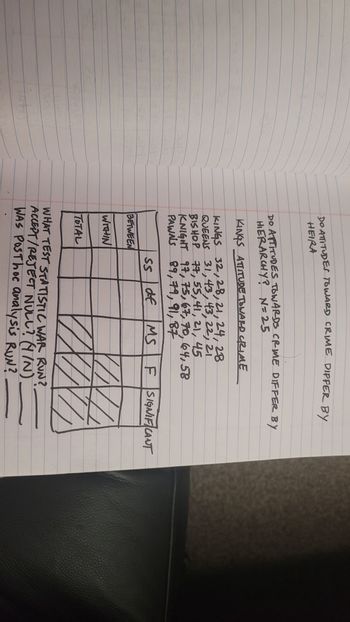 DO ATTITUDES TOWARD CRIME DIFFER BY
HEIRA
DO ATTITUDES TOWARDS CRIME DIFFER BY
HIERARCHY? N=25
KINGS ATTITUDE TOWARD CRIME
KINGS 32, 28, 21, 24, 28
QUEENS 31, 49, 43, 22, 21
BISHOP 77, 35, 41, 21, 45
KNIGHT 97, 75, 67, 90, 64, 58
PAWNS 89, 79, 91, 87
SS df MS F SIGNIFICANT
BETWEEN
WITHIN
TOTAL
WHAT TEST STATISTIC WAR RUN?
ACCEPT/REJECT NULL? (Y/N)
WAS POST hoc analysis RUN?